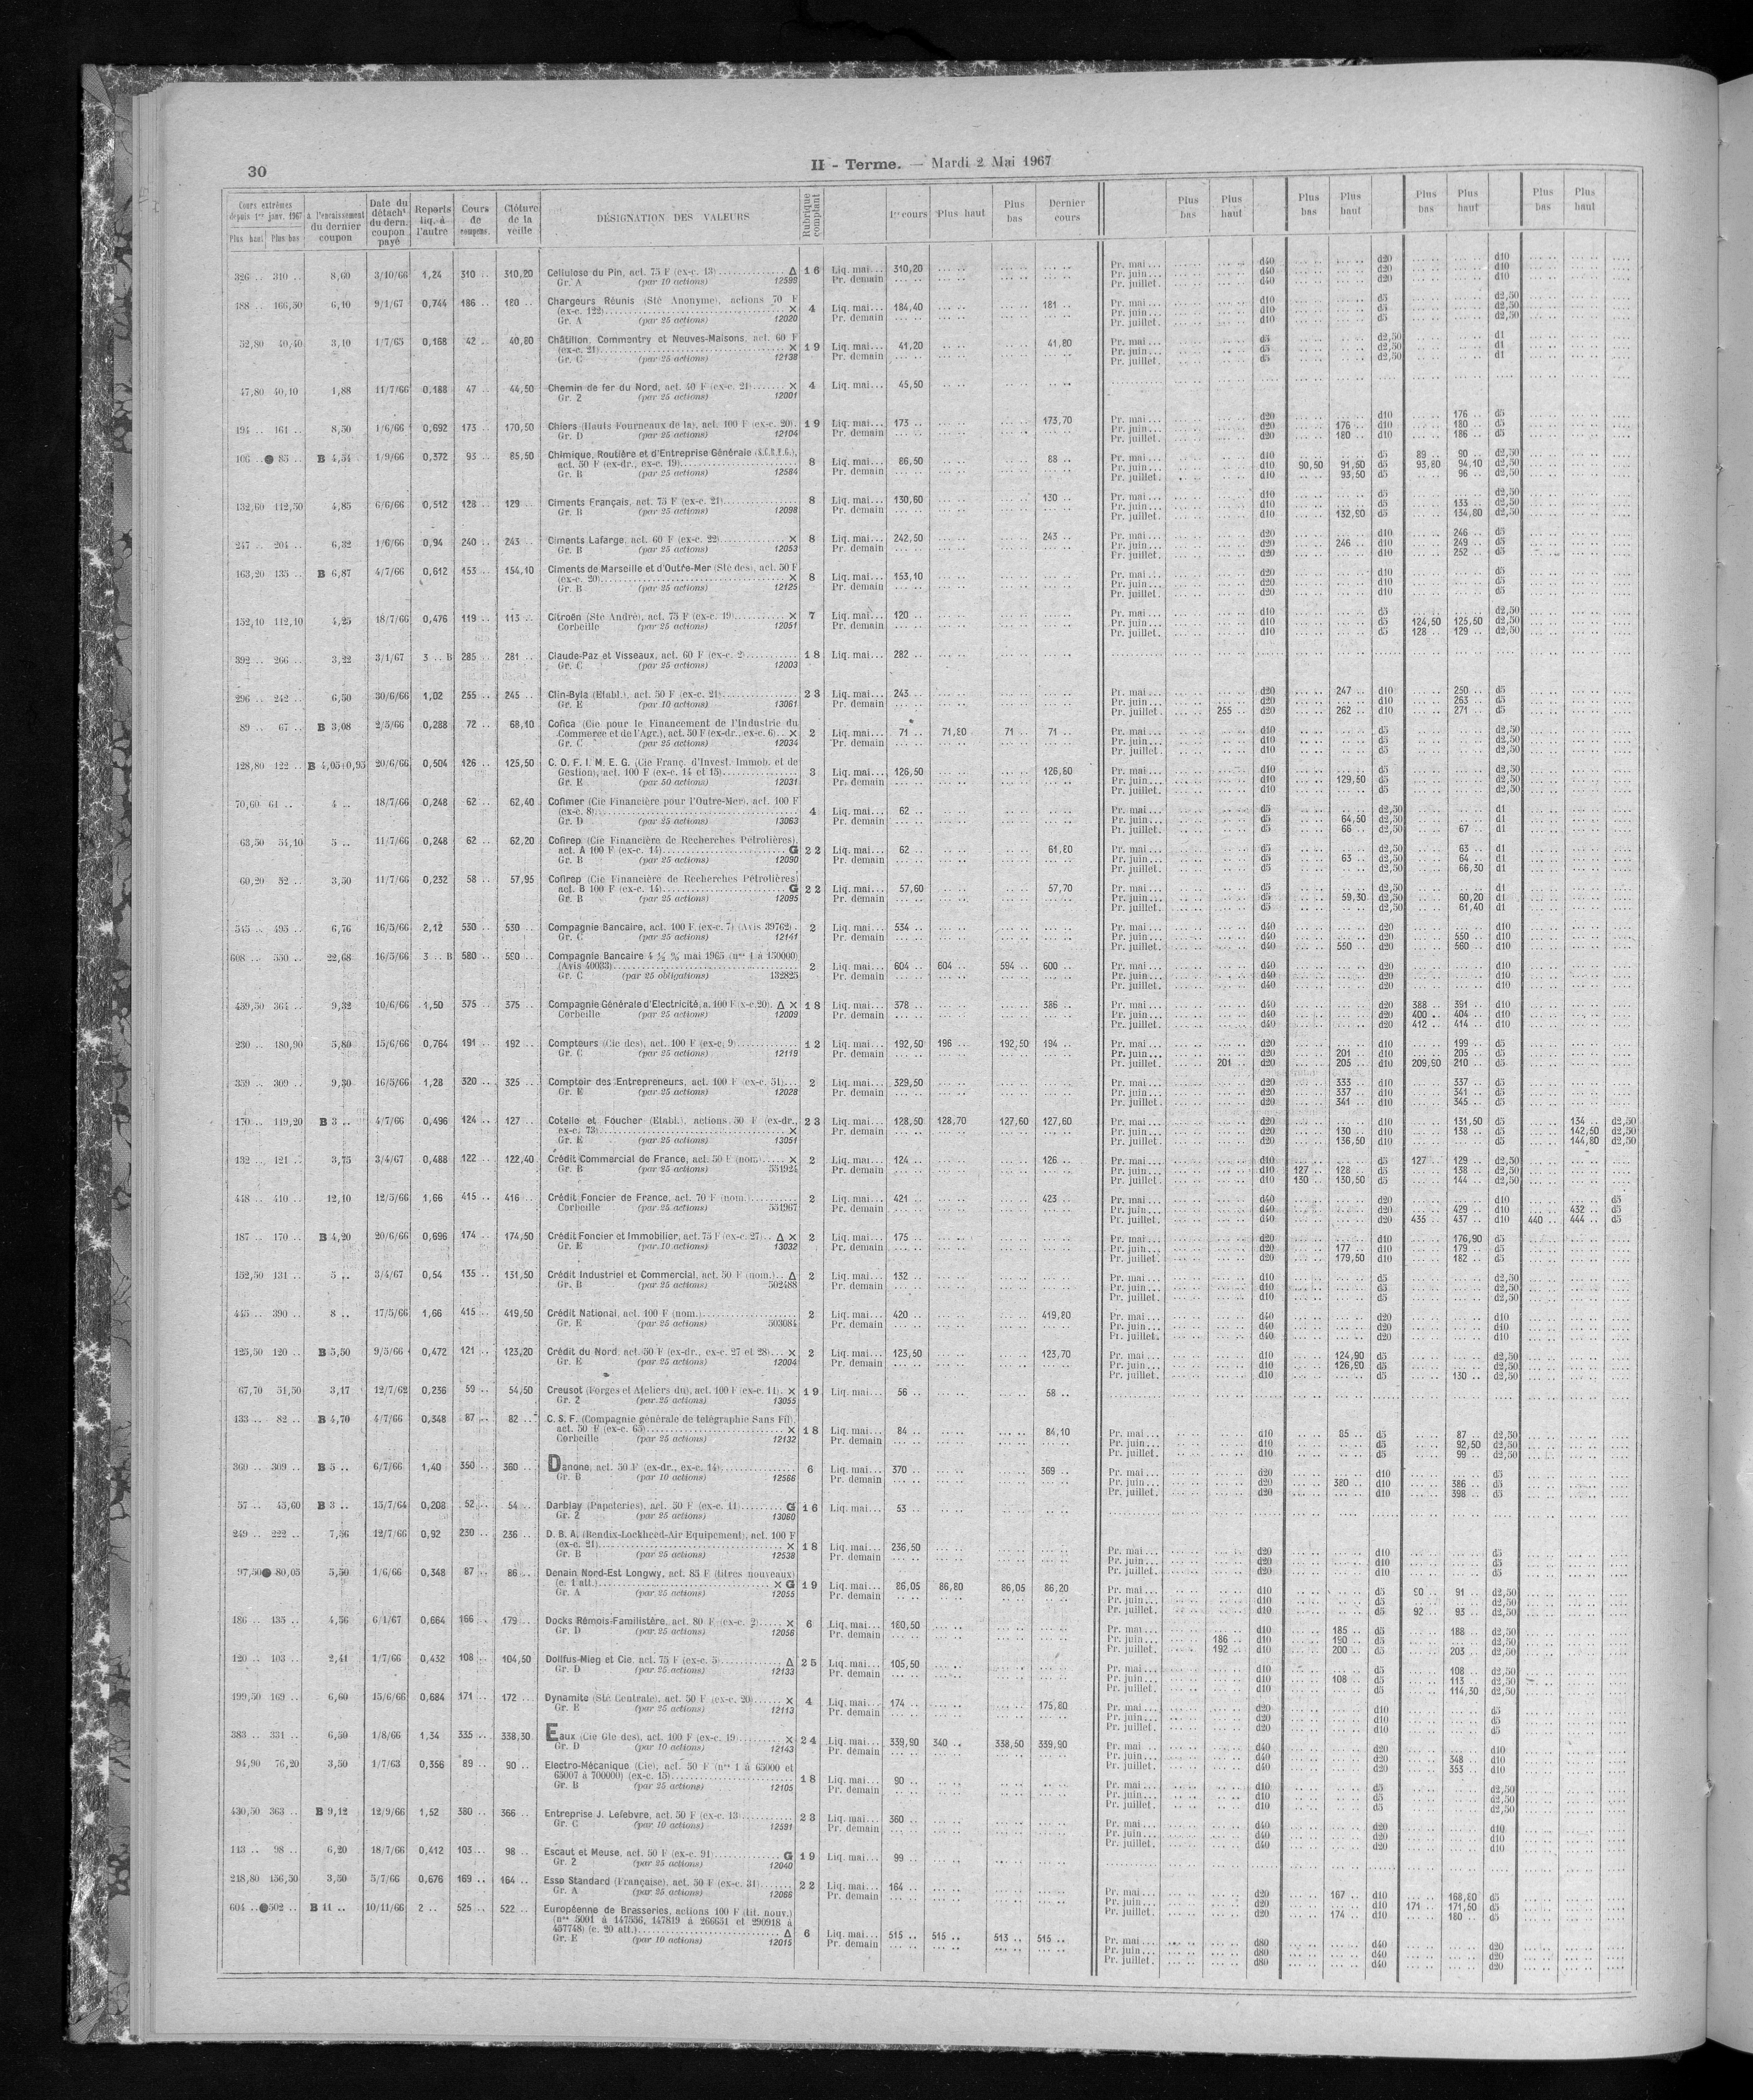 30
II - Terme. — Mardi 2 Mai 1967
Cours extrêmes depuis 1er janv. 1967 Plus haut Plus bas | à l'encaissement du dernier coupon | Date du détacht du dern. coupon payé | Reports liq. à l'autre | Cours de coupens. | Clôture de la veille | DÉSIGNATION DES VALEURS | Rubrique comptant | 1er cours | Plus haut | Plus bas | Dernier cours | Plus bas | Plus haut | Plus bas | Plus haut | Plus bas | Plus haut | Plus bas | Plus haut
326 .. 310 .. 8,60 3/10/66 1,24 310 .. 310,20 Cellulose du Pin, act. 75 F (ex-c. 13) Δ 16 Liq. mai... 310,20 Pr. mai... d40 d20 d10
Gr. A (par 10 actions) 12599 Pr. demain Pr. juin... d40 d20 d10
Pr. juillet. d40 d20 d10
188 .. 166,50 6,10 9/1/67 0,744 186 .. 180 .. Chargeurs Réunis (Sté Anonyme), actions 70 F
(ex-c. 122) × 4 Liq. mai... 184,40 181 .. Pr. mai... d10 d5 d2,50
Gr. A (par 25 actions) 12020 Pr. demain Pr. juin... d10 d5 d2,50
Pr. juillet. d10 d5 d2,50
52,80 40,40 3,10 1/7/65 0,168 42 .. 40,80 Châtillon, Commentry et Neuves-Maisons, act. 60 F
(ex-c. 21) × 19 Liq. mai... 41,20 41,80 Pr. mai... d5 d2,50 d1
Gr. C (par 25 actions) 12138 Pr. demain Pr. juin... d5 d2,50 d1
Pr. juillet. d5 d2,50 d1
47,80 40,10 1,88 11/7/66 0,188 47 .. 44,50 Chemin de fer du Nord, act. 40 F (ex-c. 21) × 4 Liq. mai... 45,50
Gr. 2 (par 25 actions) 12001
194 .. 161 .. 8,50 1/6/66 0,692 173 .. 170,50 Chiers (Hauts Fourneaux de la), act. 100 F (ex-c. 20). 19 Liq. mai... 173 .. 173,70 Pr. mai... d20 d10 176 .. d5
Gr. D (par 25 actions) 12104 Pr. demain Pr. juin... d20 176 .. d10 180 .. d5
Pr. juillet. d20 180 .. d10 186 .. d5
106 .. ● 85 .. B 4,54 1/9/66 0,372 93 .. 85,50 Chimique, Routière et d'Entreprise Générale (S.C.R.E.G.),
act. 50 F (ex-dr., ex-c. 19) 8 Liq. mai... 86,50 88 .. Pr. mai... d10 d5 89 .. 90 .. d2,50
Gr. B (par 25 actions) 12584 Pr. demain Pr. juin... d10 90,50 91,60 d5 93,80 94,10 d2,50
Pr. juillet. d10 93,50 d5 96 .. d2,50
132,60 112,50 4,85 6/6/66 0,512 128 .. 129 .. Ciments Français, act. 75 F (ex-c. 21) 8 Liq. mai... 130,60 130 .. Pr. mai... d10 d5 d2,50
Gr. B (par 25 actions) 12098 Pr. demain Pr. juin... d10 d5 133 .. d2,50
Pr. juillet. d10 132,90 d5 134,80 d2,50
247 .. 204 .. 6,32 1/6/66 0,94 240 .. 243 .. Ciments Lafarge, act. 60 F (ex-c. 22) × 8 Liq. mai... 242,50 243 .. Pr. mai... d20 d10 246 .. d5
Gr. B (par 25 actions) 12053 Pr. demain Pr. juin... d20 246 .. d10 249 .. d5
Pr. juillet. d20 d10 252 .. d5
163,20 135 .. B 6,87 4/7/66 0,612 153 .. 154,10 Ciments de Marseille et d'Outre-Mer (Sté des), act. 50 F
(ex-c. 20) × 8 Liq. mai... 153,10 Pr. mai... d20 d10 d5
Gr. B (par 25 actions) 12125 Pr. demain Pr. juin... d20 d10 d5
Pr. juillet. d20 d10 d5
152,10 112,10 4,25 18/7/66 0,476 119 .. 113 .. Citroën (Sté André), act. 75 F (ex-c. 19) × 7 Liq. mai... 120 .. Pr. mai... d10 d5 d2,50
Corbeille (par 25 actions) 12051 Pr. demain Pr. juin... d10 d5 124,50 125,50 d2,50
Pr. juillet. d10 d5 128 .. 129 .. d2,50
392 .. 266 .. 3,22 3/1/67 3 .. B 285 .. 281 .. Claude-Paz et Visseaux, act. 60 F (ex-c. 2) 18 Liq. mai... 282 ..
Gr. C (par 25 actions) 12003
296 .. 242 .. 6,50 30/6/66 1,02 255 .. 245 .. Clin-Byla (Etabl.), act. 50 F (ex-c. 21) 23 Liq. mai... 243 .. Pr. mai... d20 247 .. d10 250 .. d5
Gr. E (par 10 actions) 13061 Pr. demain Pr. juin... d20 d10 263 .. d5
Pr. juillet. 255 .. d20 262 .. d10 271 .. d5
89 .. 67 .. B 3,08 2/5/66 0,288 72 .. 68,10 Cofica (Cie pour le Financement de l'Industrie du
Commerce et de l'Agr.), act. 50 F (ex-dr., ex-c. 6) × 2 Liq. mai... 71 .. 71,80 71 .. 71 .. Pr. mai... d10 d5 d2,50
Gr. C (par 25 actions) 12034 Pr. demain Pr. juin... d10 d5 d2,50
Pr. juillet. d10 d5 d2,50
128,80 122 .. B 4,05+0,95 20/6/66 0,504 126 .. 125,50 C. O. F. I. M. E. G. (Cie Franç. d'Invest. Immob. et de
Gestion), act. 100 F (ex-c. 14 et 15) 3 Liq. mai... 126,50 126,80 Pr. mai... d10 d5 d2,50
Gr. E (par 50 actions) 12031 Pr. demain Pr. juin... d10 129,50 d5 d2,50
Pr. juillet. d10 d5 d2,50
70,60 61 .. 4 .. 18/7/66 0,248 62 .. 62,40 Cofimer (Cie Financière pour l'Outre-Mer), act. 100 F
(ex-c. 8) 4 Liq. mai... 62 .. Pr. mai... d5 d2,50 d1
Gr. D (par 25 actions) 13063 Pr. demain Pr. juin... d5 64,50 d2,50 d1
Pr. juillet. d5 66 .. d2,50 67 .. d1
63,50 54,10 5 .. 11/7/66 0,248 62 .. 62,20 Cofirep (Cie Financière de Recherches Pétrolières),
act. A 100 F (ex-c. 14) G 22 Liq. mai... 62 .. 61,80 Pr. mai... d5 d2,50 63 .. d1
Gr. B (par 25 actions) 12090 Pr. demain Pr. juin... d5 63 .. d2,50 64 .. d1
Pr. juillet. d5 d2,50 66,30 d1
60,20 52 .. 3,50 11/7/66 0,232 58 .. 57,95 Cofirep (Cie Financière de Recherches Pétrolières)
act. B 100 F (ex-c. 14) G 22 Liq. mai... 57,60 57,70 Pr. mai... d5 d2,50 d1
Gr. B (par 25 actions) 12095 Pr. demain Pr. juin... d5 59,30 d2,50 60,20 d1
Pr. juillet. d5 d2,50 61,40 d1
545 .. 495 .. 6,76 16/5/66 2,12 530 .. 530 .. Compagnie Bancaire, act. 100 F (ex-c. 7) (Avis 39762) 2 Liq. mai... 534 .. Pr. mai... d40 d20 d10
Gr. C (par 25 actions) 12141 Pr. demain Pr. juin... d40 d20 550 .. d10
Pr. juillet. d40 550 .. d20 560 .. d10
608 .. 550 .. 22,68 16/5/66 3 .. B 580 .. 590 .. Compagnie Bancaire 4 ½ % mai 1965 (nos 1 à 150000)
(Avis 40033) 2 Liq. mai... 604 .. 604 .. 594 .. 600 .. Pr. mai... d40 d20 d10
Gr. C (par 25 obligations) 132825 Pr. demain Pr. juin... d40 d20 d10
Pr. juillet. d40 d20 d10
439,50 364 .. 9,32 10/6/66 1,50 375 .. 375 .. Compagnie Générale d'Electricité, a. 100 F (x-c.20). Δ × 18 Liq. mai... 378 .. 386 .. Pr. mai... d40 d20 388 .. 391 .. d10
Corbeille (par 25 actions) 12009 Pr. demain Pr. juin... d40 d20 400 .. 404 .. d10
Pr. juillet. d40 d20 412 .. 414 .. d10
230 .. 180,90 5,80 15/6/66 0,764 191 .. 192 .. Compteurs (Cie des), act. 100 F (ex-c. 9) 12 Liq. mai... 192,50 196 .. 192,50 194 .. Pr. mai... d20 d10 199 .. d5
Gr. C (par 25 actions) 12119 Pr. demain Pr. juin... d20 201 .. d10 205 .. d5
Pr. juillet. 201 .. d20 205 .. d10 209,90 210 .. d5
359 .. 309 .. 9,30 16/5/66 1,28 320 .. 325 .. Comptoir des Entrepreneurs, act. 100 F (ex-c. 51) 2 Liq. mai... 329,50 Pr. mai... d20 333 .. d10 337 .. d5
Gr. E (par 25 actions) 12028 Pr. demain Pr. juin... d20 337 .. d10 341 .. d5
Pr. juillet. d20 341 .. d10 345 .. d5
170 .. 119,20 B 3 .. 4/7/66 0,496 124 .. 127 .. Cotelle et Foucher (Etabl.), actions 50 F (ex-dr.,
ex-c. 73) × 23 Liq. mai... 128,50 128,70 127,60 127,60 Pr. mai... d20 d10 131,50 d5 134 .. d2,50
Gr. E (par 25 actions) 13051 Pr. demain Pr. juin... d20 130 .. d10 138 .. d5 142,50 d2,50
Pr. juillet. d20 136,50 d10 d5 144,80 d2,50
132 .. 121 .. 3,75 3/4/67 0,488 122 .. 122,40 Crédit Commercial de France, act. 50 F (nom.) × 2 Liq. mai... 124 .. 126 .. Pr. mai... d10 d5 127 .. 129 .. d2,50
Gr. B (par 25 actions) 551924 Pr. demain Pr. juin... d10 127 .. 128 .. d5 138 .. d2,50
Pr. juillet. d10 130 .. 130,50 d5 144 .. d2,50
448 .. 410 .. 12,10 12/5/66 1,66 415 .. 416 .. Crédit Foncier de France, act. 70 F (nom.) 2 Liq. mai... 421 .. 423 .. Pr. mai... d40 d20 d10 d5
Corbeille (par 25 actions) 551967 Pr. demain Pr. juin... d40 d20 429 .. d10 432 .. d5
Pr. juillet. d40 d20 435 .. 437 .. d10 440 .. 444 .. d5
187 .. 170 .. B 4,20 20/6/66 0,696 174 .. 174,50 Crédit Foncier et Immobilier, act. 75 F (ex-c. 27). Δ × 2 Liq. mai... 175 .. Pr. mai... d20 d10 176,90 d5
Gr. E (par 10 actions) 13032 Pr. demain Pr. juin... d20 177 .. d10 179 .. d5
Pr. juillet. d20 179,50 d10 182 .. d5
152,50 131 .. 5 .. 3/4/67 0,54 135 .. 131,50 Crédit Industriel et Commercial, act. 50 F (nom.) Δ 2 Liq. mai... 132 .. Pr. mai... d10 d5 d2,50
Gr. B (par 25 actions) 502488 Pr. demain Pr. juin... d10 d5 d2,50
Pr. juillet. d10 d5 d2,50
445 .. 390 .. 8 .. 17/5/66 1,66 415 .. 419,50 Crédit National, act. 100 F (nom.) 2 Liq. mai... 420 .. 419,80 Pr. mai... d40 d20 d10
Gr. E (par 25 actions) 503084 Pr. demain Pr. juin... d40 d20 d10
Pr. juillet. d40 d20 d10
125,50 120 .. B 5,50 9/5/66 0,472 121 .. 123,20 Crédit du Nord, act. 50 F (ex-dr., ex-c. 27 et 28) × 2 Liq. mai... 123,50 123,70 Pr. mai... d10 124,90 d5 d2,50
Gr. E (par 25 actions) 12004 Pr. demain Pr. juin... d10 126,90 d5 d2,50
Pr. juillet. d10 d5 130 .. d2,50
67,70 51,50 3,17 12/7/62 0,236 59 .. 54,50 Creusot (Forges et Ateliers du), act. 100 F (ex-c. 11). × 19 Liq. mai... 56 .. 58 ..
Gr. 2 (par 25 actions) 13055
133 .. 82 .. B 4,70 4/7/66 0,348 87 .. 82 .. C. S. F. (Compagnie générale de télégraphie Sans Fil),
act. 50 F (ex-c. 65) × 18 Liq. mai... 84 .. 84,10 Pr. mai... d10 85 .. d5 87 .. d2,50
Corbeille (par 25 actions) 12132 Pr. demain Pr. juin... d10 d5 92,50 d2,50
Pr. juillet. d10 d5 99 .. d2,50
360 .. 309 .. B 5 .. 6/7/66 1,40 350 .. 360 .. Danone, act. 50 F (ex-dr., ex-c. 14) 6 Liq. mai... 370 .. 369 .. Pr. mai... d20 d10 d5
Gr. B (par 10 actions) 12566 Pr. demain Pr. juin... d20 380 .. d10 386 .. d5
Pr. juillet. d20 d10 398 .. d5
57 .. 45,60 B 3 .. 15/7/64 0,208 52 .. 54 .. Darblay (Papeteries), act. 50 F (ex-c. 11) G 16 Liq. mai... 53 ..
Gr. 2 (par 25 actions) 13060
249 .. 222 .. 7,56 12/7/66 0,92 230 .. 236 .. D. B. A. (Bendix-Lockheed-Air Equipement), act. 100 F
(ex-c. 21) × 18 Liq. mai... 236,50 Pr. mai... d20 d10 d5
Gr. B (par 25 actions) 12538 Pr. demain Pr. juin... d20 d10 d5
Pr. juillet. d20 d10 d5
97,50 ● 80,05 5,50 1/6/66 0,348 87 .. 86 .. Denain Nord-Est Longwy, act. 85 F (titres nouveaux)
(c. 1 att.) × G 19 Liq. mai... 86,05 86,80 86,05 86,20 Pr. mai... d10 d5 90 .. 91 .. d2,50
Gr. A (par 25 actions) 12055 Pr. demain Pr. juin... d10 d5 d2,50
Pr. juillet. d10 d5 92 .. 93 .. d2,50
186 .. 135 .. 4,56 6/1/67 0,664 166 .. 179 .. Docks Rémois-Familistère, act. 80 F (ex-c. 2) × 6 Liq. mai... 180,50 Pr. mai... d10 185 .. d5 188 .. d2,50
Gr. D (par 25 actions) 12056 Pr. demain Pr. juin... 186 .. d10 190 .. d5 d2,50
Pr. juillet. 192 .. d10 200 .. d5 203 .. d2,50
120 .. 103 .. 2,41 1/7/66 0,432 108 .. 104,50 Dollfus-Mieg et Cie, act. 75 F (ex-c. 5) Δ 25 Liq. mai... 105,50 Pr. mai... d10 d5 108 .. d2,50
Gr. D (par 25 actions) 12133 Pr. demain Pr. juin... d10 108 .. d5 113 .. d2,50
Pr. juillet. d10 d5 114,30 d2,50
199,50 169 .. 6,60 15/6/66 0,684 171 .. 172 .. Dynamite (Sté Centrale), act. 50 F (ex-c. 20) × 4 Liq. mai... 174 .. 175,80 Pr. mai... d20 d10 d5
Gr. E (par 25 actions) 12113 Pr. demain Pr. juin... d20 d10 d5
Pr. juillet. d20 d10 d5
383 .. 331 .. 6,50 1/8/66 1,34 335 .. 338,30 Eaux (Cie Gle des), act. 100 F (ex-c. 19) × 24 Liq. mai... 339,90 340 .. 338,50 339,90 Pr. mai... d40 d20 d10
Gr. D (par 10 actions) 12143 Pr. demain Pr. juin... d40 d20 348 .. d10
Pr. juillet. d40 d20 353 .. d10
94,90 76,20 3,50 1/7/63 0,356 89 .. 90 .. Electro-Mécanique (Cie), act. 50 F (nos 1 à 65000 et
65007 à 700000) (ex-c. 15) 18 Liq. mai... 90 .. Pr. mai... d10 d5 d2,50
Gr. B (par 25 actions) 12105 Pr. demain Pr. juin... d10 d5 d2,50
Pr. juillet. d10 d5 d2,50
430,50 363 .. B 9,12 12/9/66 1,52 380 .. 366 .. Entreprise J. Lefebvre, act. 50 F (ex-c. 13) 23 Liq. mai... 360 .. Pr. mai... d40 d20 d10
Gr. C (par 10 actions) 12591 Pr. demain Pr. juin... d40 d20 d10
Pr. juillet. d40 d20 d10
113 .. 98 .. 6,20 18/7/66 0,412 103 .. 98 .. Escaut et Meuse, act. 50 F (ex-c. 91) G 19 Liq. mai... 99 ..
Gr. 2 (par 25 actions) 12040
218,80 156,50 3,50 5/7/66 0,676 169 .. 164 .. Esso Standard (Française), act. 50 F (ex-c. 31) 22 Liq. mai... 164 .. Pr. mai... d20 167 .. d10 168,80 d5
Gr. A (par 25 actions) 12066 Pr. demain Pr. juin... d20 d10 171 .. 171,50 d5
Pr. juillet. d20 174 .. d10 180 .. d5
604 .. ● 502 .. B 11 .. 10/11/66 2 .. 525 .. 522 .. Européenne de Brasseries, actions 100 F (tit. nouv.)
(nos 5001 à 147556, 147819 à 266651 et 290918 à
457748) (c. 20 att.) Δ 6 Liq. mai... 515 .. 515 .. 513 .. 515 .. Pr. mai... d80 d40 d20
Gr. E (par 10 actions) 12015 Pr. demain Pr. juin... d80 d40 d20
Pr. juillet. d80 d40 d20